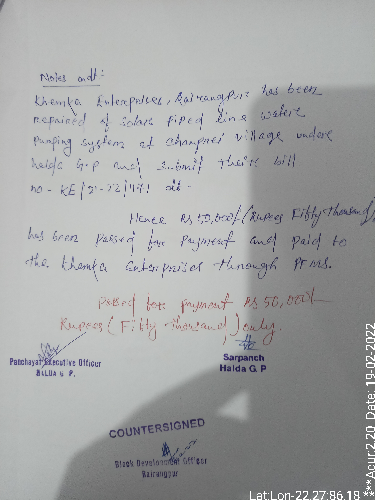 Notes ordt:
Khemka Enterprises, Rairangpur has been
repaired of solar piped line water
pumping system at champei village under
halda G.P and submit their bill
no - KE/21-22/1491 dt -
Hence Rs 50,000/- (Rupees Fifty thousand)
has been passed for payment and paid to
the Khemka Enterprises through PFMS.
passed for payment Rs 50,000/-
Rupees (Fifty thousand) only.
Panchayat Executive Officer
HALDA G. P.
Sarpanch
Halda G. P
COUNTERSIGNED
Block Development Officer
Rairangpur
Lat:Lon-22.27:86.18
***Acur:2.20 Date: 19-02-2022